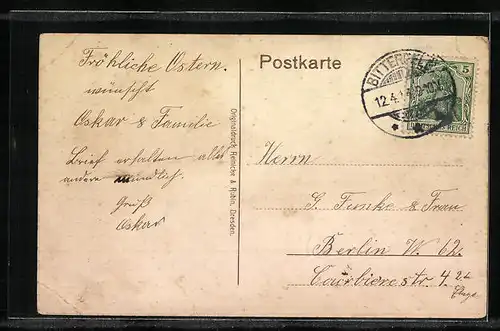 Fröhliche Ostern.
wünscht
Oskar & Familie
Brief erhalten alles
andere mündlich.
Gruß
Oskar
Originaldruck Reinicke & Rubin, Dresden.
Postkarte
BITTERFELD
12.4.
5
REICH
Herrn
G. Funke & Frau
Berlin W. 62.
Courbierestr. 4 2te
Etage